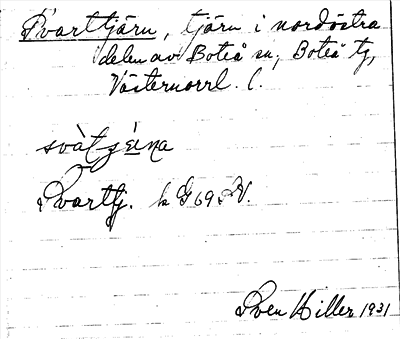 Svarttjärn, tjärn i nordöstra
delen av Boteå sn, Boteå tg,
Västernorrl. l.
svàtjɛ́ɳa
Svarttj. k G 69 SV.
Sven Hiller 1931